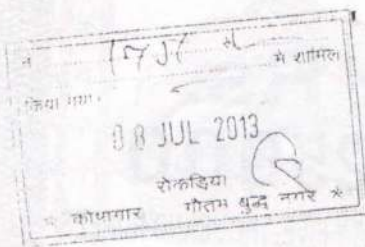 में शामिल
किया गया।
08 JUL 2013
रोकड़िया
* कोषागार गौतम बुद्ध नगर *